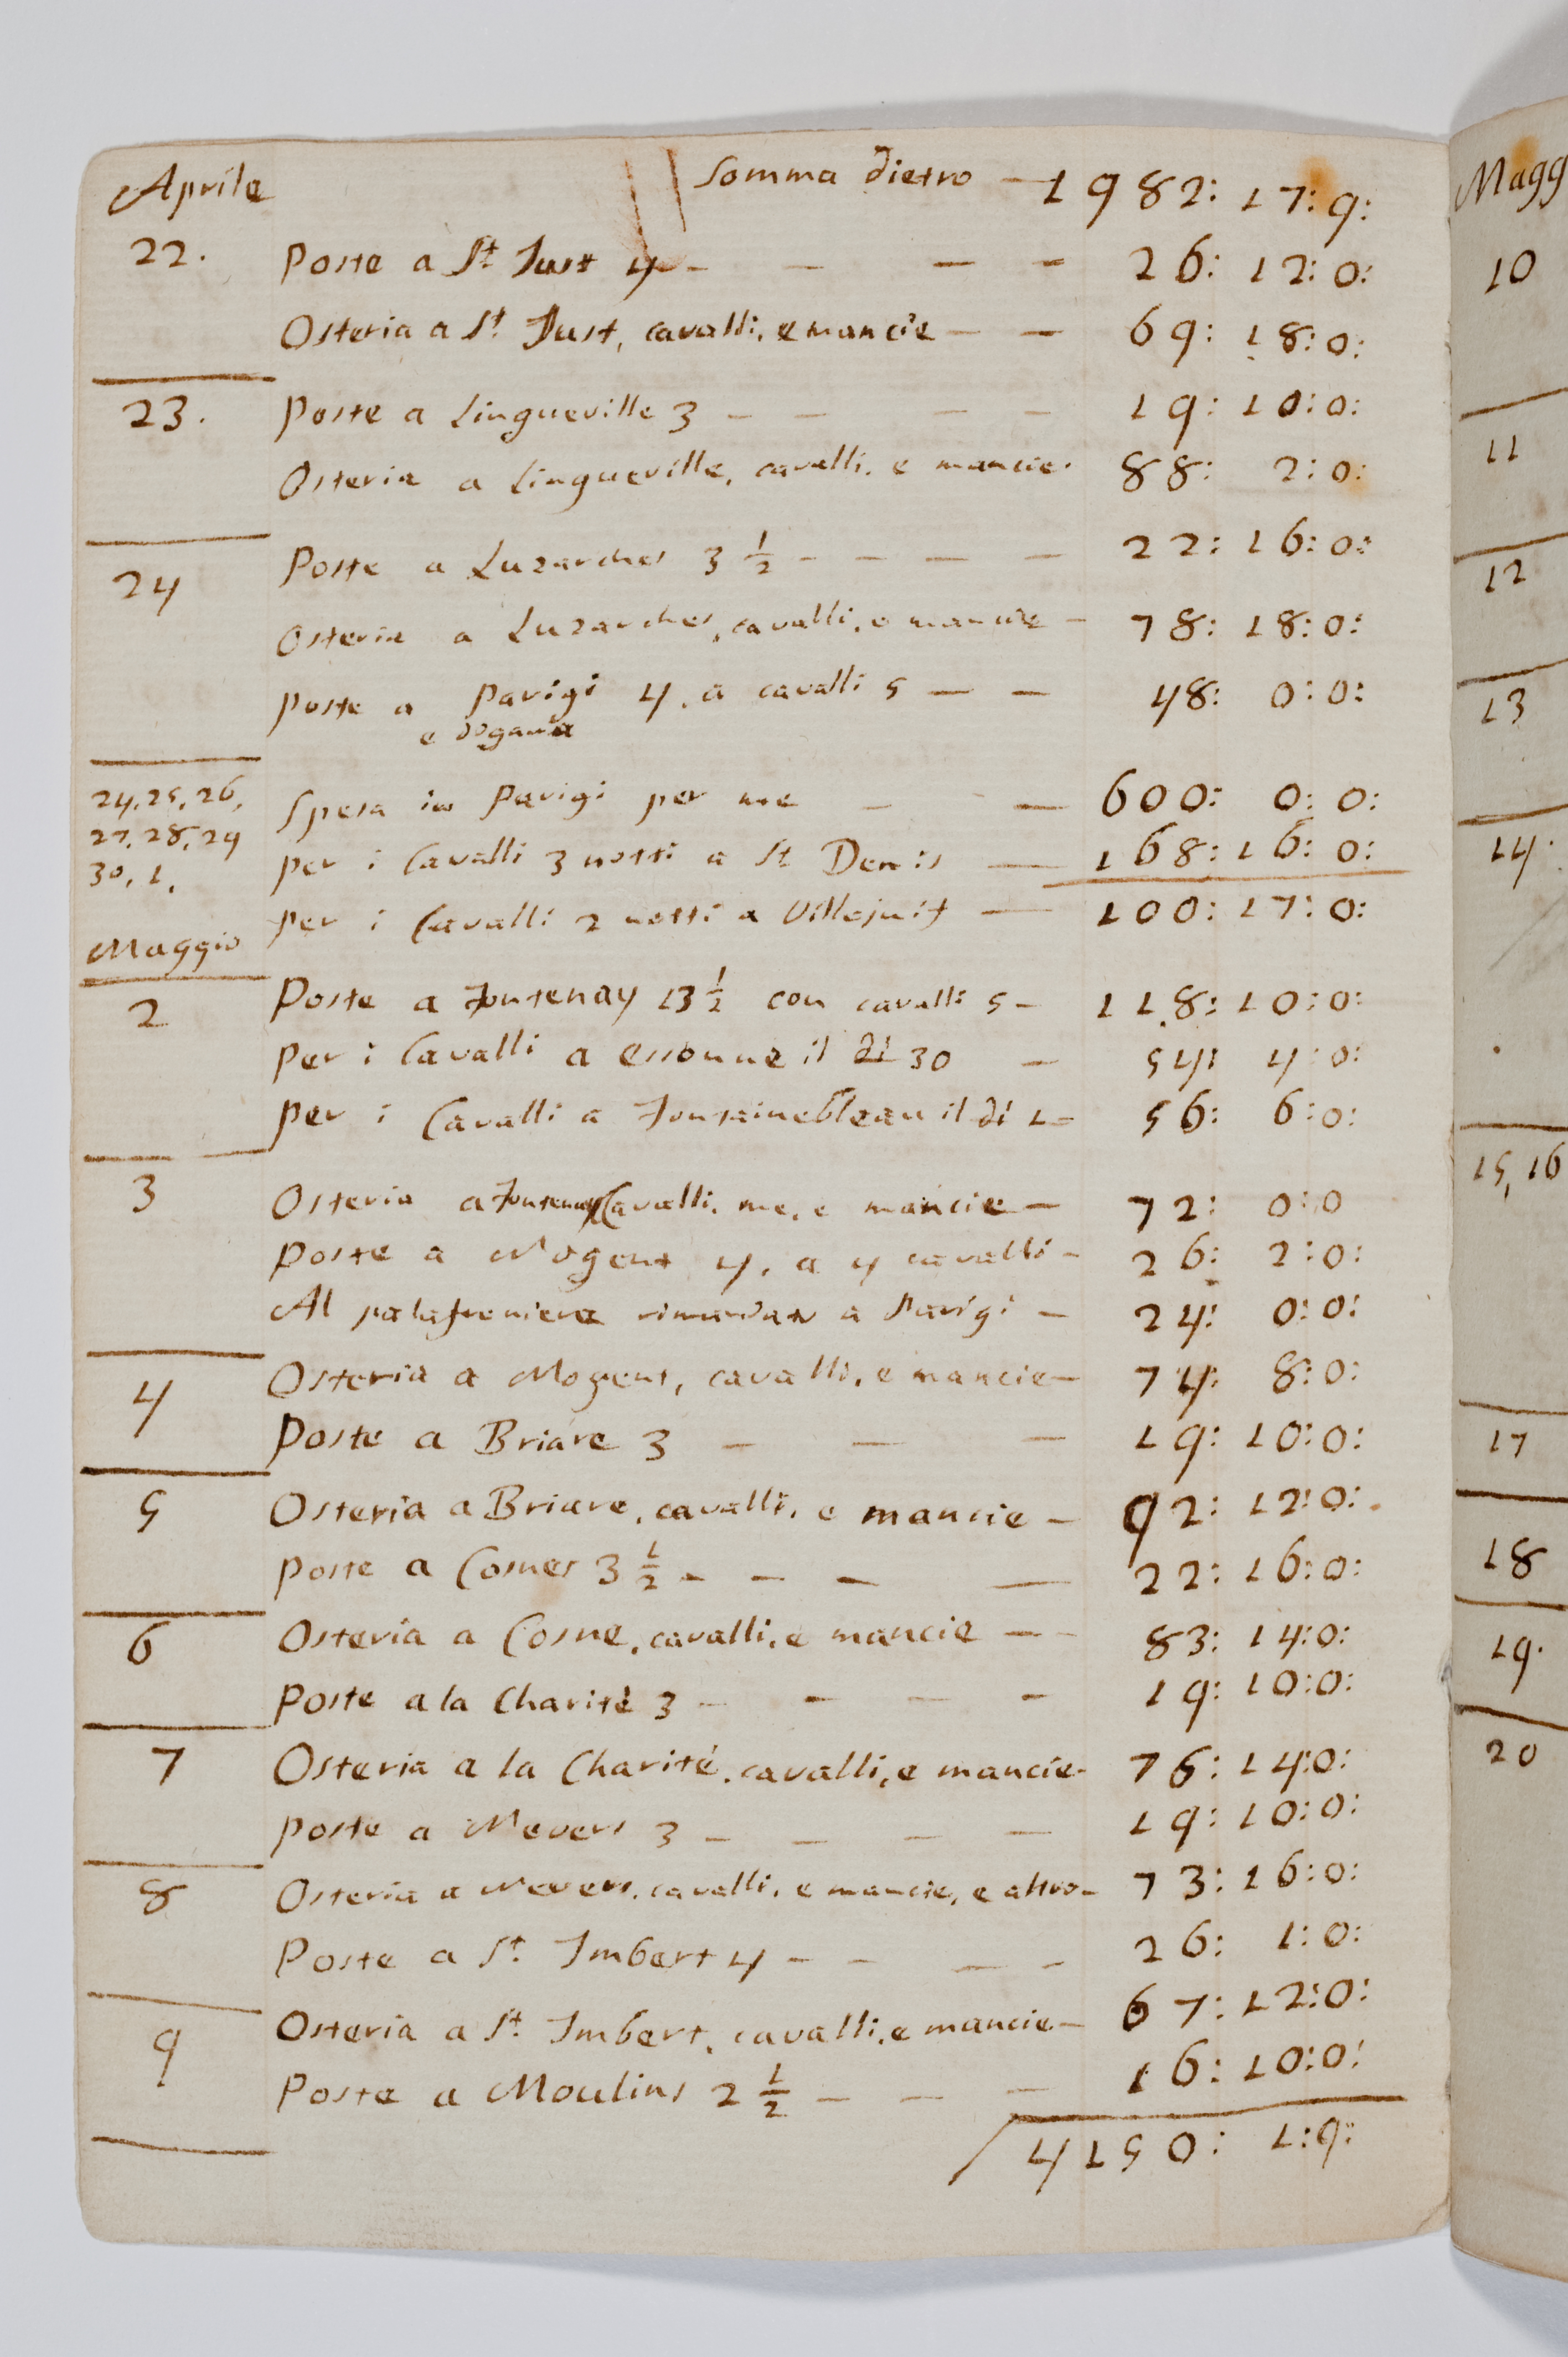 Aprile Somma dietro — 1982: 17: 9:
22. Poste a St Just 4 - — — — 26: 12: 0:
Osteria a St. Just, cavalli, e mancie — — 69: 18: 0:
23. Poste a Lingueville 3 — — — — 19: 10: 0:
Osteria a Lingueville, cavalli, e mancie. 88: 2: 0:
24 Poste a Luzarches 3 1/2 - - — — — 22: 16: 0:
Osteria a Luzarches, cavalli, e mancie — 78: 18: 0:
Poste a Parigi 4, a cavalli 5 — — 48: 0: 0:
e dogana
24, 25, 26, Spesa in Parigi per me — — 600: 0: 0:
27, 28, 29 per i Cavalli 3 notti a St Denis — 168: 16: 0:
30, 1, per i Cavalli 2 notti a Villejuif — 100: 17: 0:
Maggio
2 Poste a Fontenay 13 1/2 con cavalli 5 - 118: 10: 0:
Per i Cavalli a Essonne il dì 30 — 54: 4: 0:
per i Cavalli a Fontainebleau il dì 1 - 56: 6: 0:
3 Osteria a Fontenay Cavalli, me, e mancie — 72: 0: 0
Poste a Nogent 4, a 4 cavalli - 26: 2: 0:
Al palafreniere rimandato a Parigi — 24: 0: 0:
4 Osteria a Nogent, cavalli, e mancie — 74: 8: 0:
Poste a Briare 3 — — — 19: 10: 0:
5 Osteria a Briare, cavalli, e mancie — 92: 12: 0:
Poste a Cosnes 3 1/2 - - — — 22: 16: 0:
6 Osteria a Cosne, cavalli, e mancie — - 83: 14: 0:
Poste a la Charité 3 - - — - 19: 10: 0:
7 Osteria a la Charité, cavalli, e mancie - 76: 14: 0:
Poste a Nevers 3 — — — — 19: 10: 0:
8 Osteria a Nevers, cavalli, e mancie, e altro - 73: 16: 0:
Poste a St. Imbert 4 - - — - 26: 1: 0:
9 Osteria a St. Imbert, cavalli, e mancie — 67: 12: 0:
Poste a Moulins 2 1/2 — — — 16: 10: 0:
4150: 1: 9:
Magg
10
11
12
13
14.
15, 16
17
18
19.
20